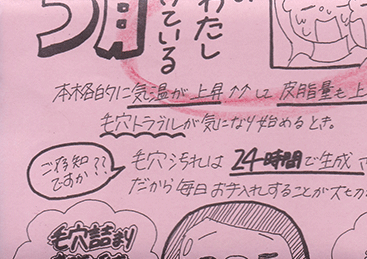 5月
わたし
けている
本格的に気温が上昇↑↑して皮脂量も上
毛穴トラブルが気になり始めるとき。
ご存知??
ですか??
毛穴汚れは24時間で生成
だから毎日お手入れすることが大切
毛穴詰まり